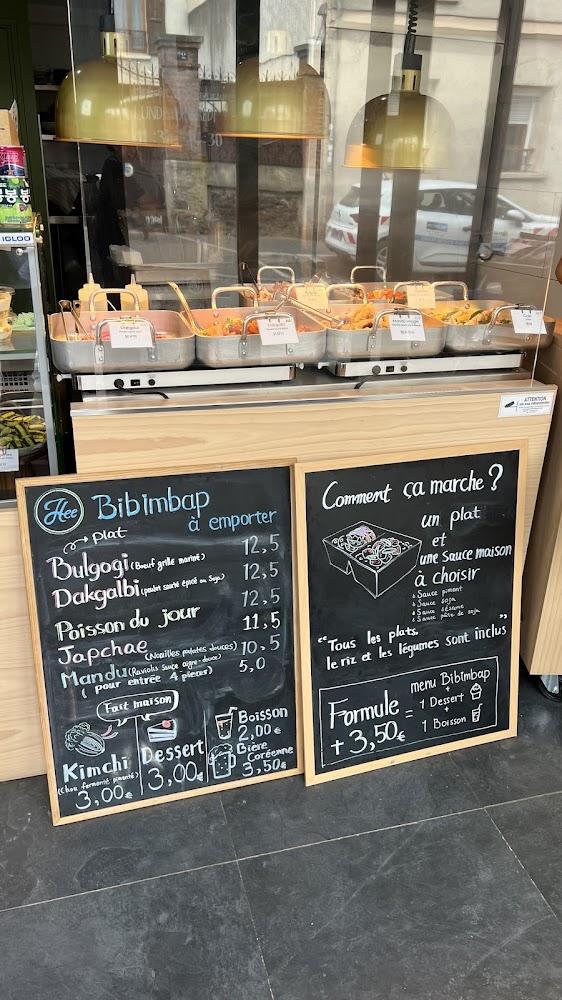 IGLOO
ATTENTION
Hee Bibimbap
à emporter
Plat
Bulgogi (Bœuf grillé mariné) 12,5
Dakgalbi (poulet sauté épicé au Soja) 12,5
Poisson du jour 12,5
11,5
Japchae (Nouilles patates douces) 10,5
Mandu (Raviolis sauce aigre-douce) 5,0
( pour entrée 4 pièces)
Fait maison
Kimchi
(chou fermenté pimenté)
3,00€
Dessert
3,00€
Boisson
2,00€
Bière
Coréenne
3,50€
Comment ça marche ?
un plat
et
une sauce maison
à choisir
Sauce piment
Sauce soja
Sauce sésame
Sauce pâte de soja
"Tous les plats,
le riz et les légumes sont inclus"
Formule
+ 3,50€ =
menu Bibimbap
+
1 Dessert
+
1 Boisson